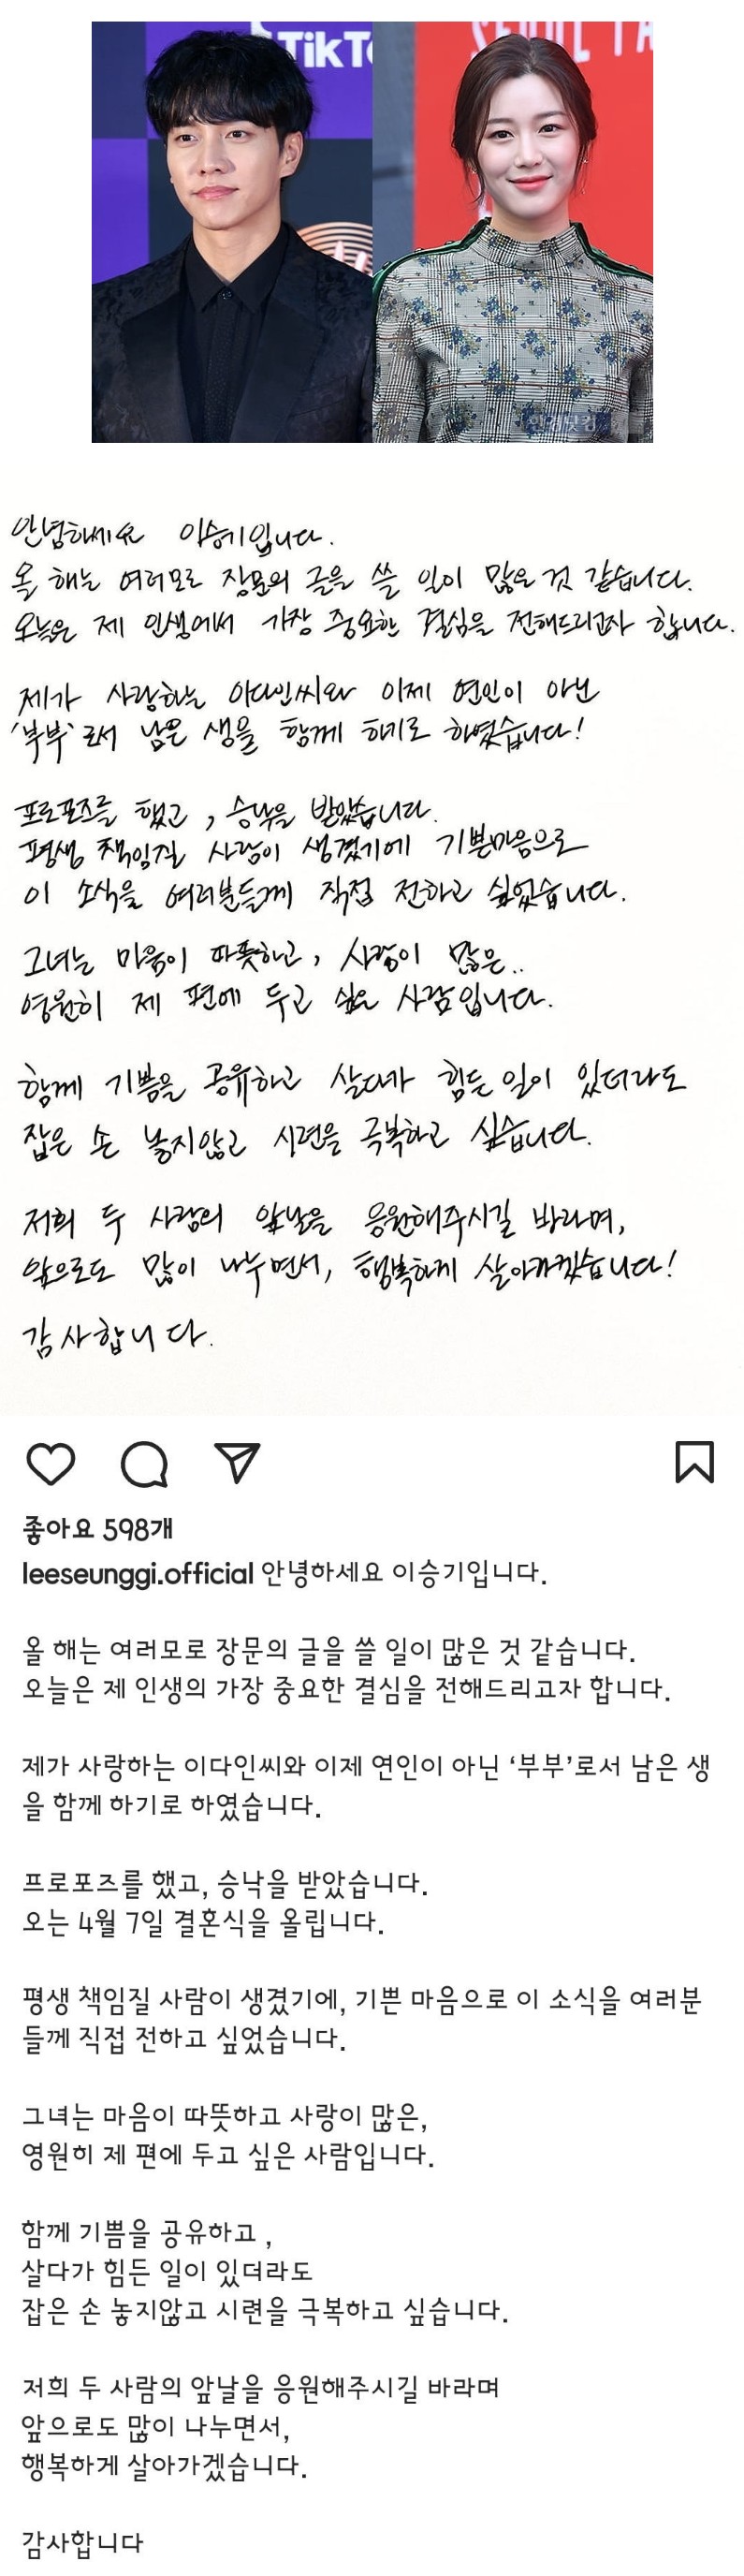 TikTo
SEOUL FA
한경닷컴
안녕하세요 이승기입니다.
올 해는 여러모로 장문의 글을 쓸 일이 많은 것 같습니다.
오늘은 제 인생에서 가장 중요한 결심을 전해드리고자 합니다.
제가 사랑하는 이다인씨와 이제 연인이 아닌
'부부'로서 남은 생을 함께 하기로 하였습니다!
프로포즈를 했고, 승낙을 받았습니다.
평생 책임질 사람이 생겼기에 기쁜마음으로
이 소식을 여러분들께 직접 전하고 싶었습니다.
그녀는 마음이 따뜻하고, 사랑이 많은..
영원히 제 편에 두고 싶은 사람입니다.
함께 기쁨을 공유하고 살다가 힘든 일이 있더라도
잡은 손 놓지않고 시련을 극복하고 싶습니다.
저희 두 사람의 앞날을 응원해주시길 바라며,
앞으로도 많이 나누면서, 행복하게 살아가겠습니다!
감사합니다.
좋아요 598개
leeseunggi.official 안녕하세요 이승기입니다.
올 해는 여러모로 장문의 글을 쓸 일이 많은 것 같습니다.
오늘은 제 인생의 가장 중요한 결심을 전해드리고자 합니다.
제가 사랑하는 이다인씨와 이제 연인이 아닌 ‘부부’로서 남은 생
을 함께 하기로 하였습니다.
프로포즈를 했고, 승낙을 받았습니다.
오는 4월 7일 결혼식을 올립니다.
평생 책임질 사람이 생겼기에, 기쁜 마음으로 이 소식을 여러분
들께 직접 전하고 싶었습니다.
그녀는 마음이 따뜻하고 사랑이 많은,
영원히 제 편에 두고 싶은 사람입니다.
함께 기쁨을 공유하고 ,
살다가 힘든 일이 있더라도
잡은 손 놓지않고 시련을 극복하고 싶습니다.
저희 두 사람의 앞날을 응원해주시길 바라며
앞으로도 많이 나누면서,
행복하게 살아가겠습니다.
감사합니다